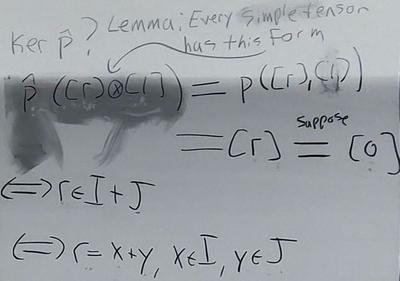 Ker p̂ ? Lemma: Every simple tensor
has this form
p̂ ([r]⊗[1]) = p([r],[1])
= [r] suppose = [0]
⟺ r∈I+J
⟺ r=x+y, x∈I, y∈J